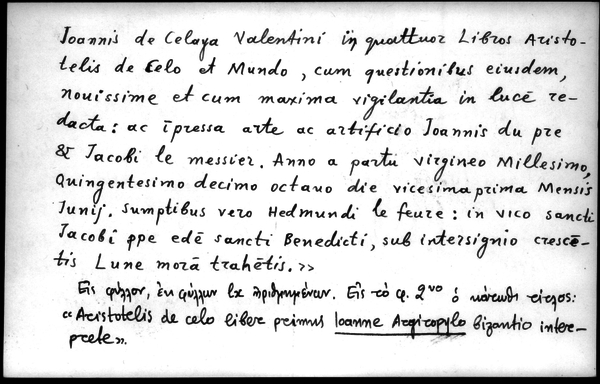 Ioannis de Celaya Valentini in quattuor Libros Aristo-
telis de Celo et Mundo, cum questionibus eiusdem,
nouissime et cum maxima vigilantia in lucē re-
dacta: ac īpressa arte ac artificio Joannis du pre
& Iacobi le messier. Anno a partu virgineo Millesimo,
Quingentesimo decimo octauo die vicesimaprima Mensis
Iunij. Sumptibus vero Hedmundi le feure: in vico sancti
Jacobi ppe edē sancti Benedicti, sub intersignio crescē-
tis Lune morā trahētis.»
Εἰς φύλλον, ἐκ φύλλων lx ἠριθμημένων. Εἰς τὸ φ. 2ᵛᵒ ὁ κάτωθι τίτλος:
«Aristotelis de celo liber primus Ioanne Argiropylo bizantio inter-
prete».